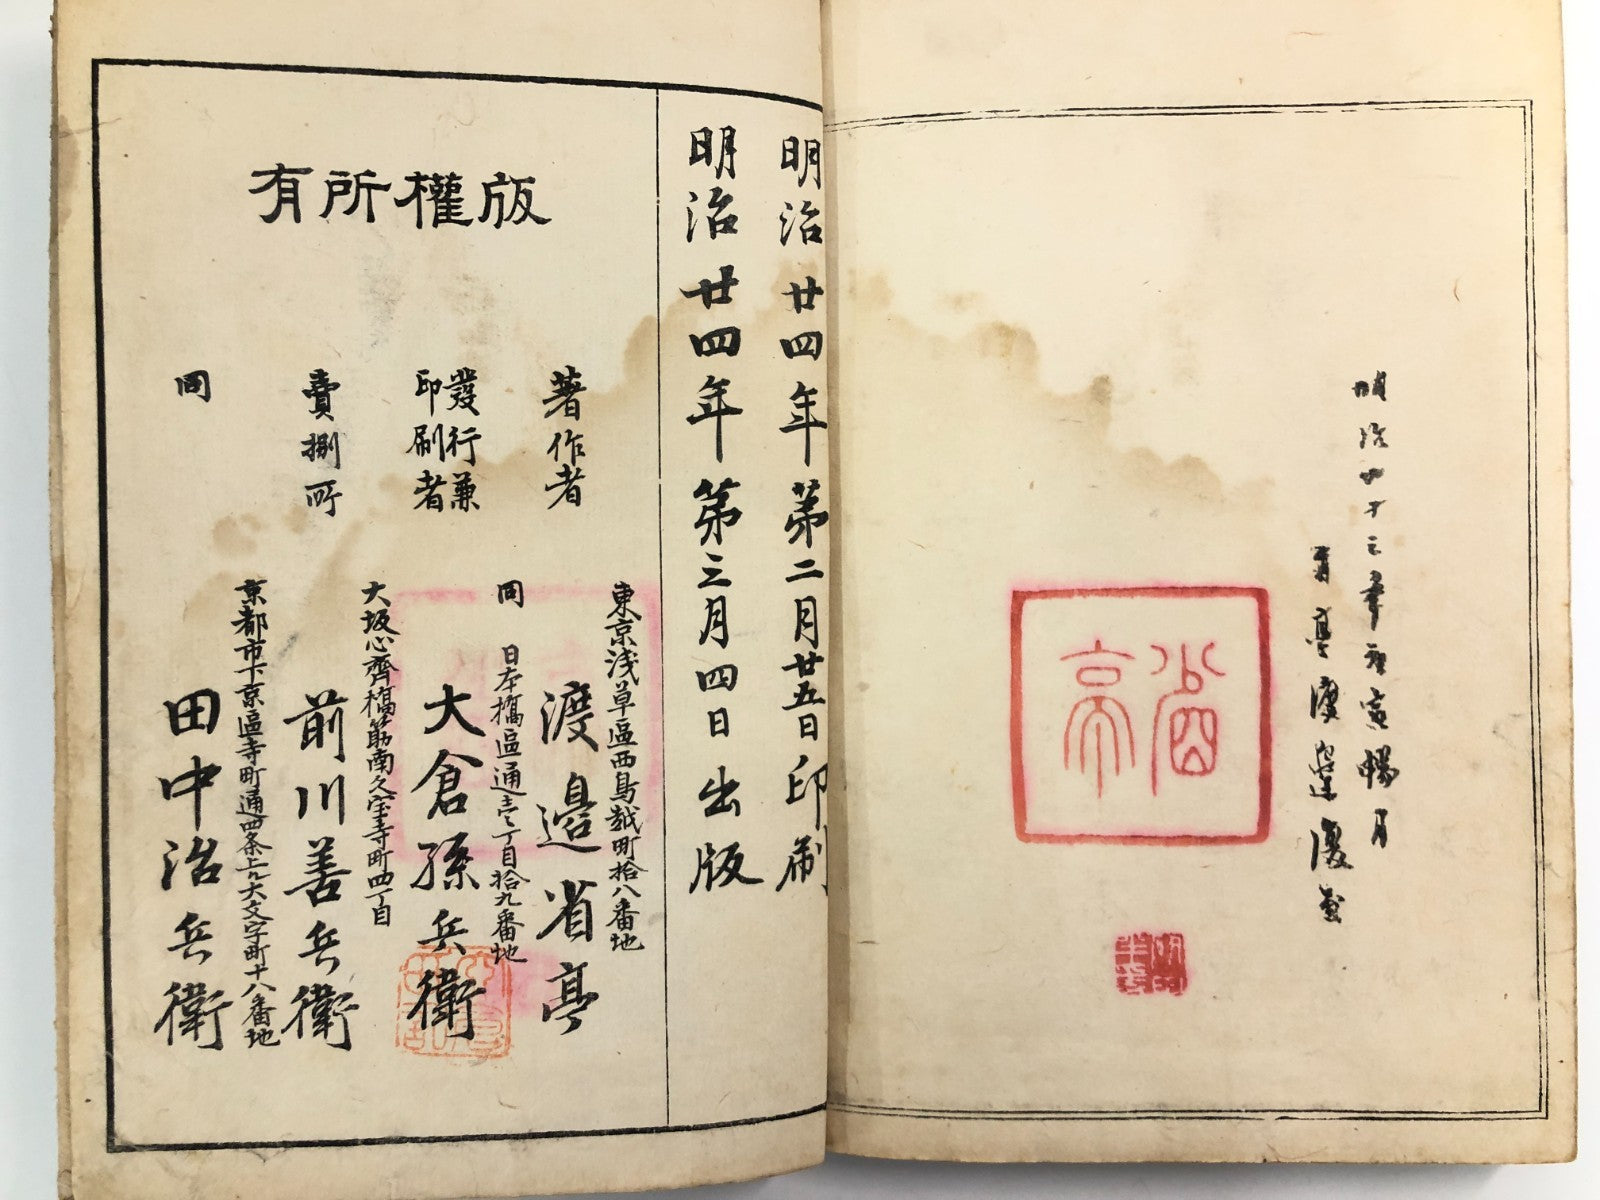 明治十三年寅暢月
省亭渡邊
省亭
明治廿四年第二月廿五日印刷
明治廿四年第三月四日出版
版權所有
東京浅草區西鳥越町拾八番地
著作者 渡邊省亭
同 日本橋區通壱丁目拾九番地
發行兼印刷者 大倉孫兵衛
大坂心齋橋筋南久宝寺町四丁目
賣捌所 前川善兵衛
京都市下京區寺町通四条上ル大文字町十八番地
同 田中治兵衛